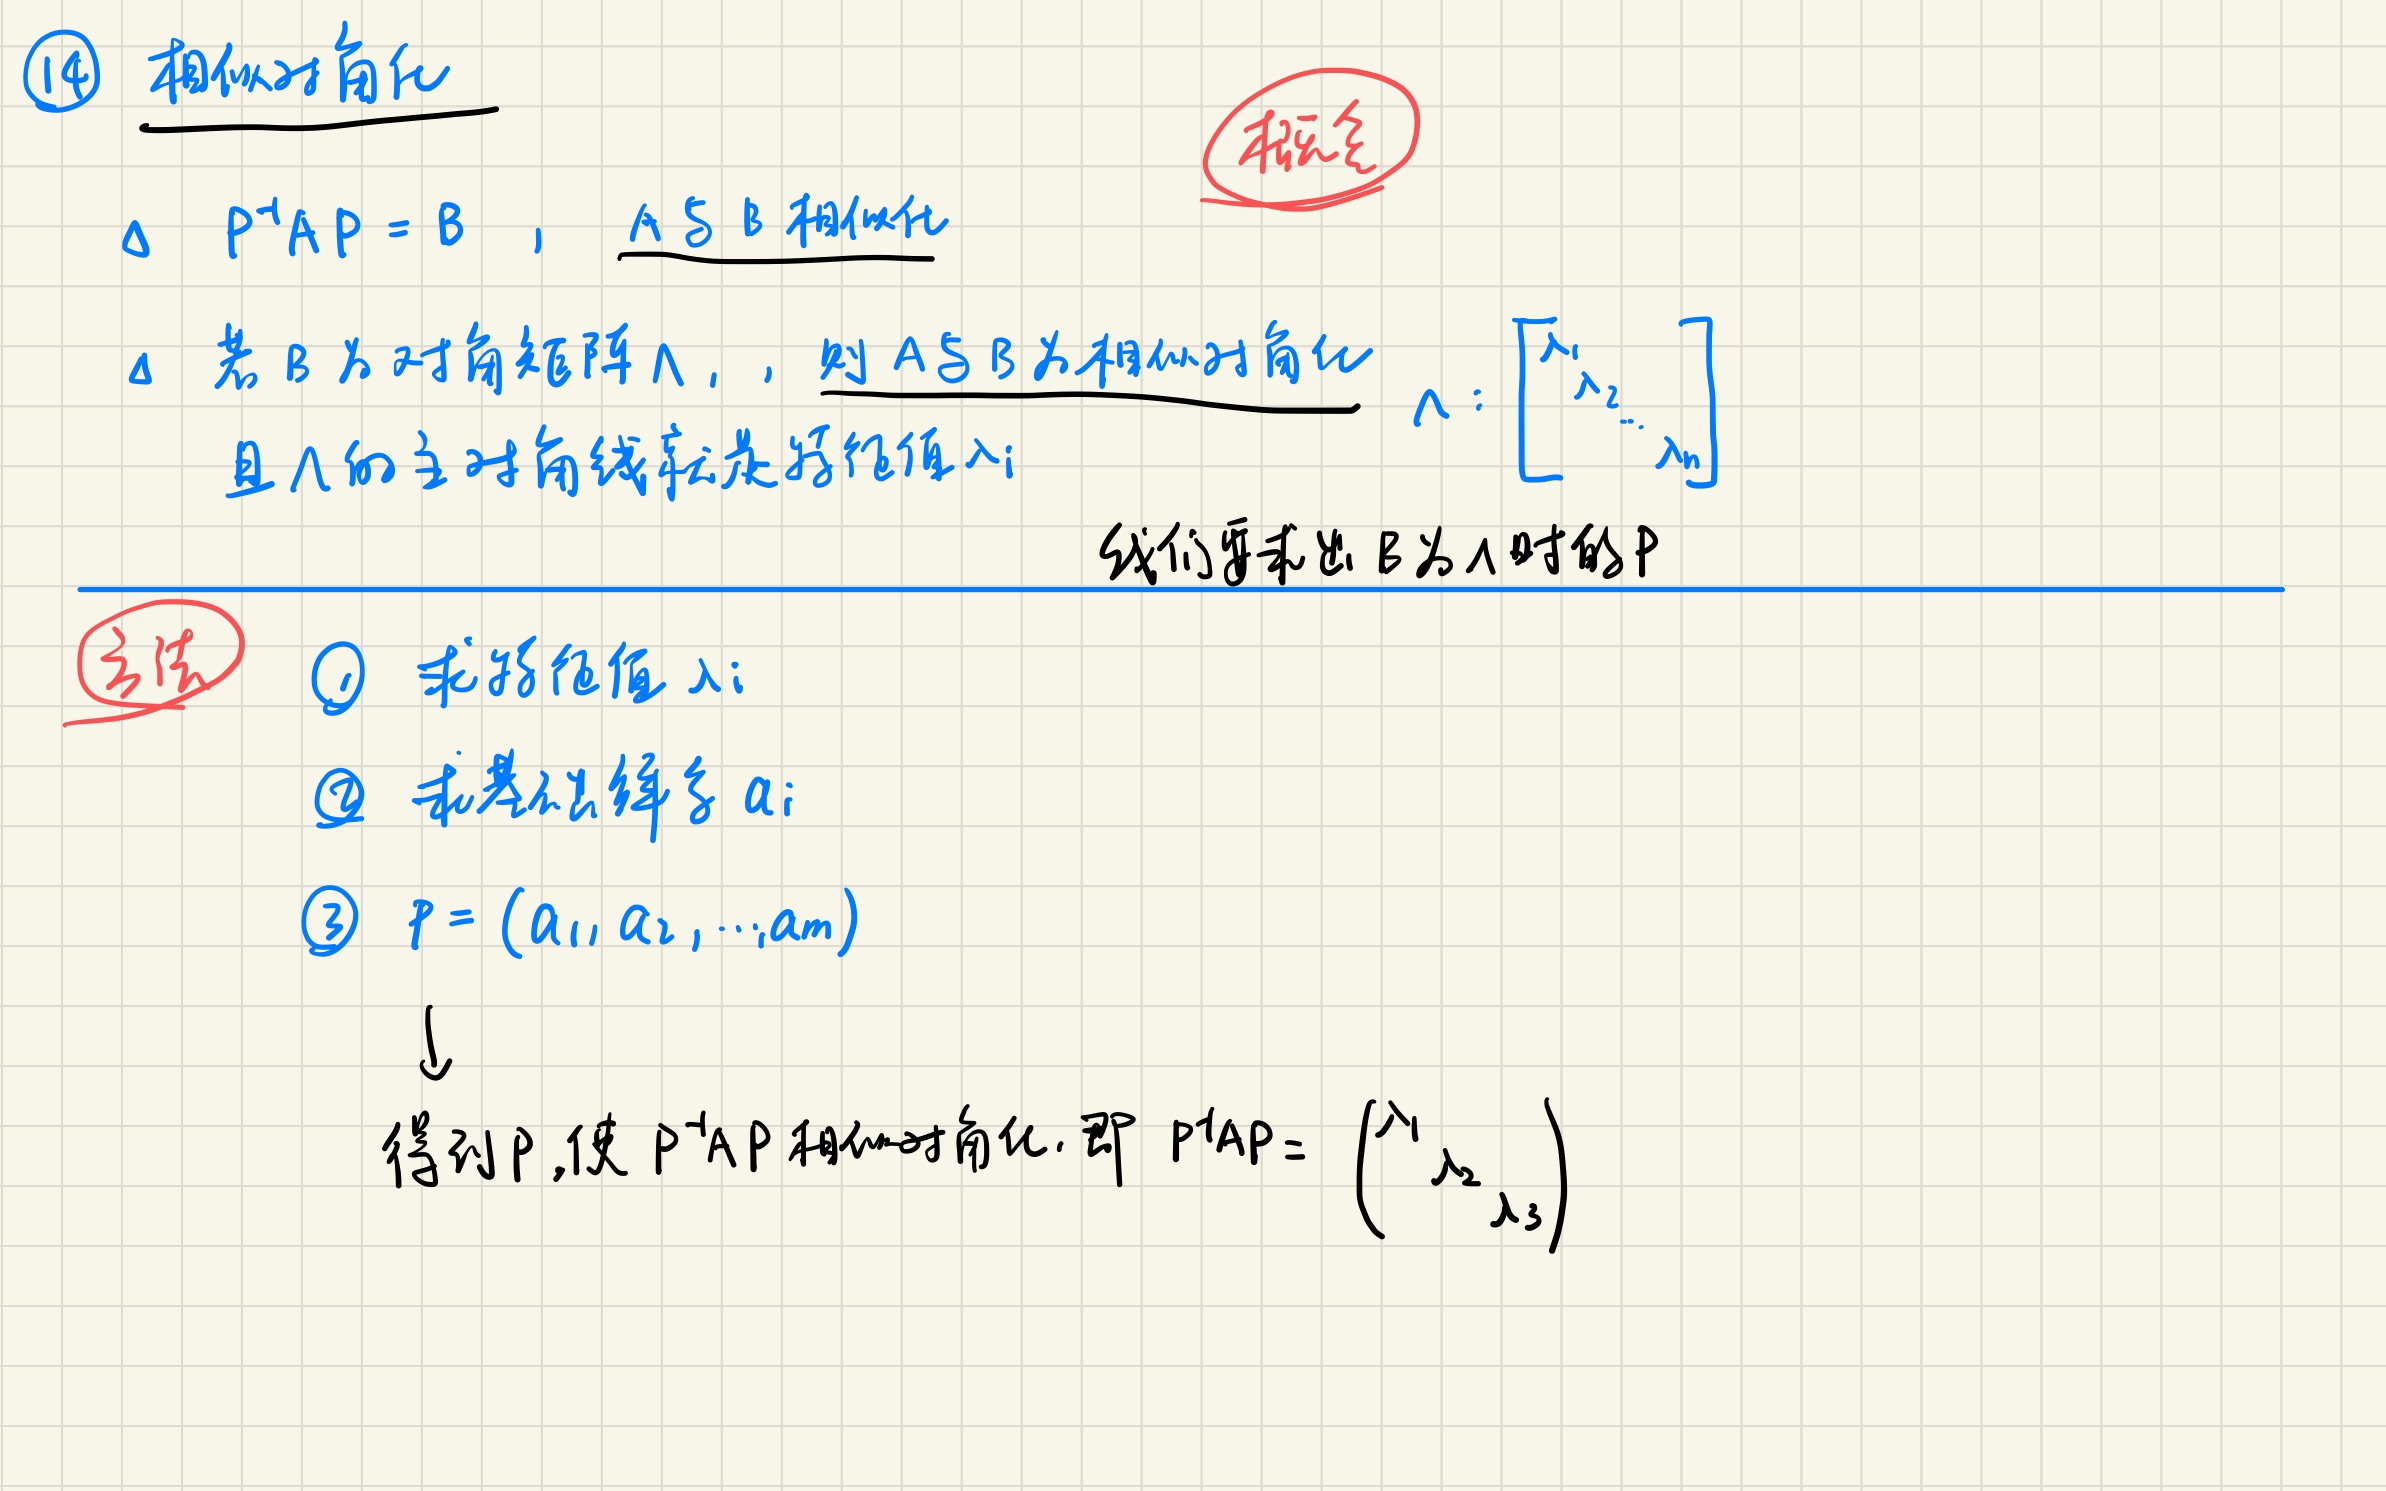 ⑭ 相似对角化
概念
△ P⁻¹AP = B , A与B相似化
△ 若B为对角矩阵Λ, , 则A与B为相似对角化 Λ : [λ₁ λ₂ ... λn]
且Λ的主对角线元是特征值λi
我们要求出B为Λ时的P
方法
① 求特征值λi
② 求基础解系ai
③ P = (a₁, a₂, ..., am)
↓
得到P,使P⁻¹AP相似对角化. 即 P⁻¹AP = (λ₁ λ₂ λ₃)